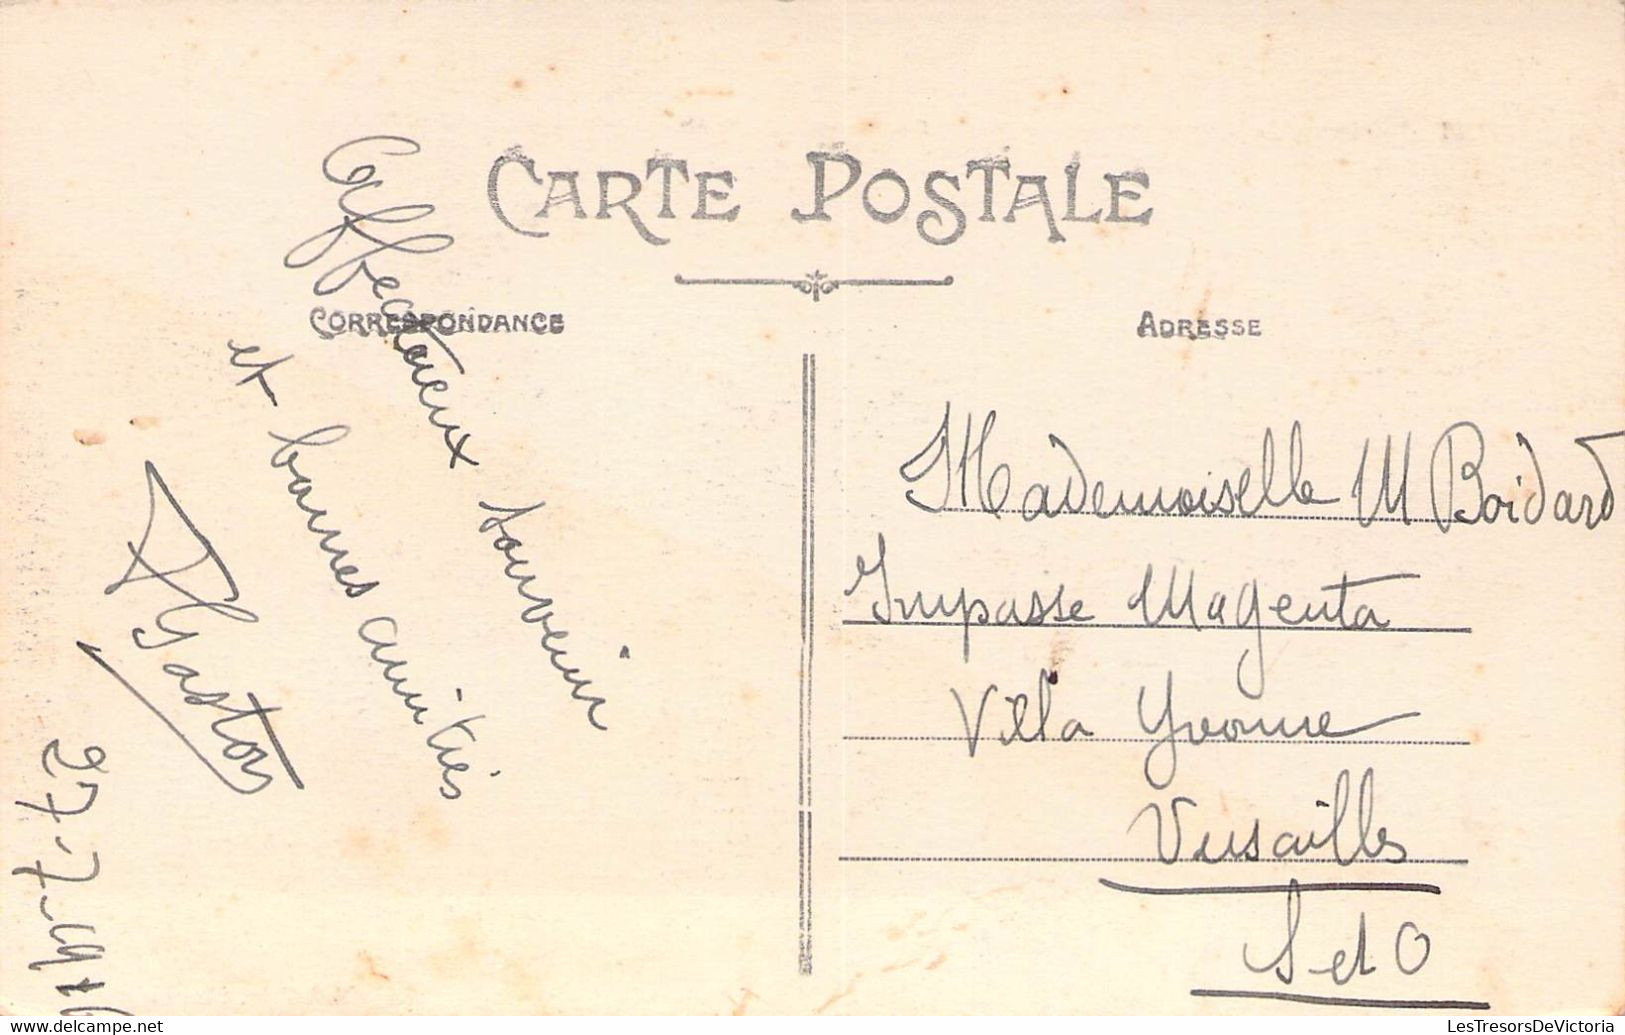 CARTE POSTALE
CORRESPONDANCE
ADRESSE
Affectueux souvenir
et bonnes amitiés
Gaston
27-7-1916
Mademoiselle M Boidard
Impasse Magenta
Villa Yvonne
Versailles
S et O
LesTresorsDeVictoria